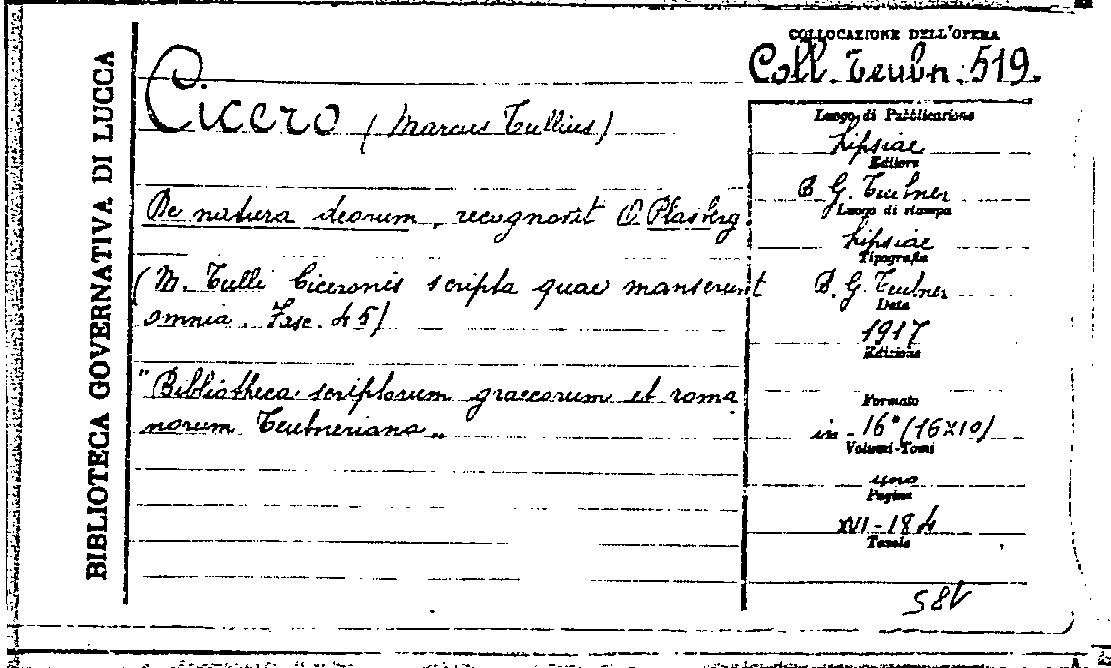 BIBLIOTECA GOVERNATIVA DI LUCCA
COLLOCAZIONE DELL'OPERA
Coll. Teubn. 519.
Cicero (Marcus Tullius)
De natura deorum, recognovit O. Plasberg.
(M. Tulli Ciceronis scripta quae manserunt
omnia. Fasc. 45)
"Bibliotheca scriptorum graecorum et roma
norum Teubneriana„
Luogo di Pubblicazione
Lipsiae
Editore
B. G. Teubner
Luogo di stampa
Lipsiae
Tipografia
B. G. Teubner
Data
1917
Edizione
Formato
in-16° (16x10)
Volumi-Tomi
uno
Pagine
XVI-184
Tavole